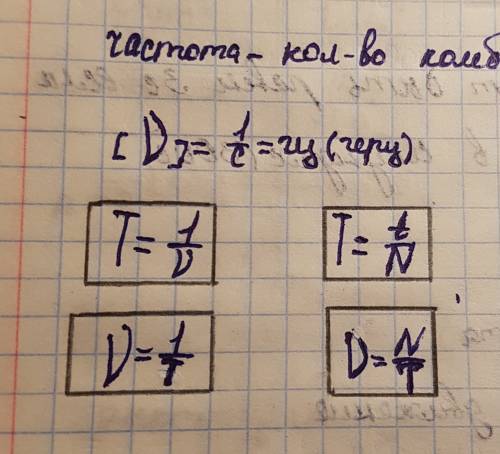 частота - кол-во колеб
[ν] = 1/с = гц (герц)
T = 1/ν
T = t/N
ν = 1/T
ν = N/T